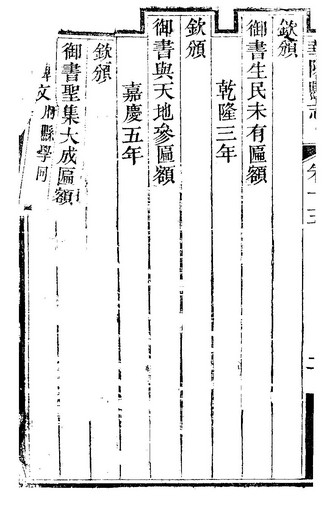 華陽縣志 卷十三
欽頒
御書生民未有匾額
乾隆三年
欽頒
御書與天地參匾額
嘉慶五年
欽頒
御書聖集大成匾額
文府縣學同